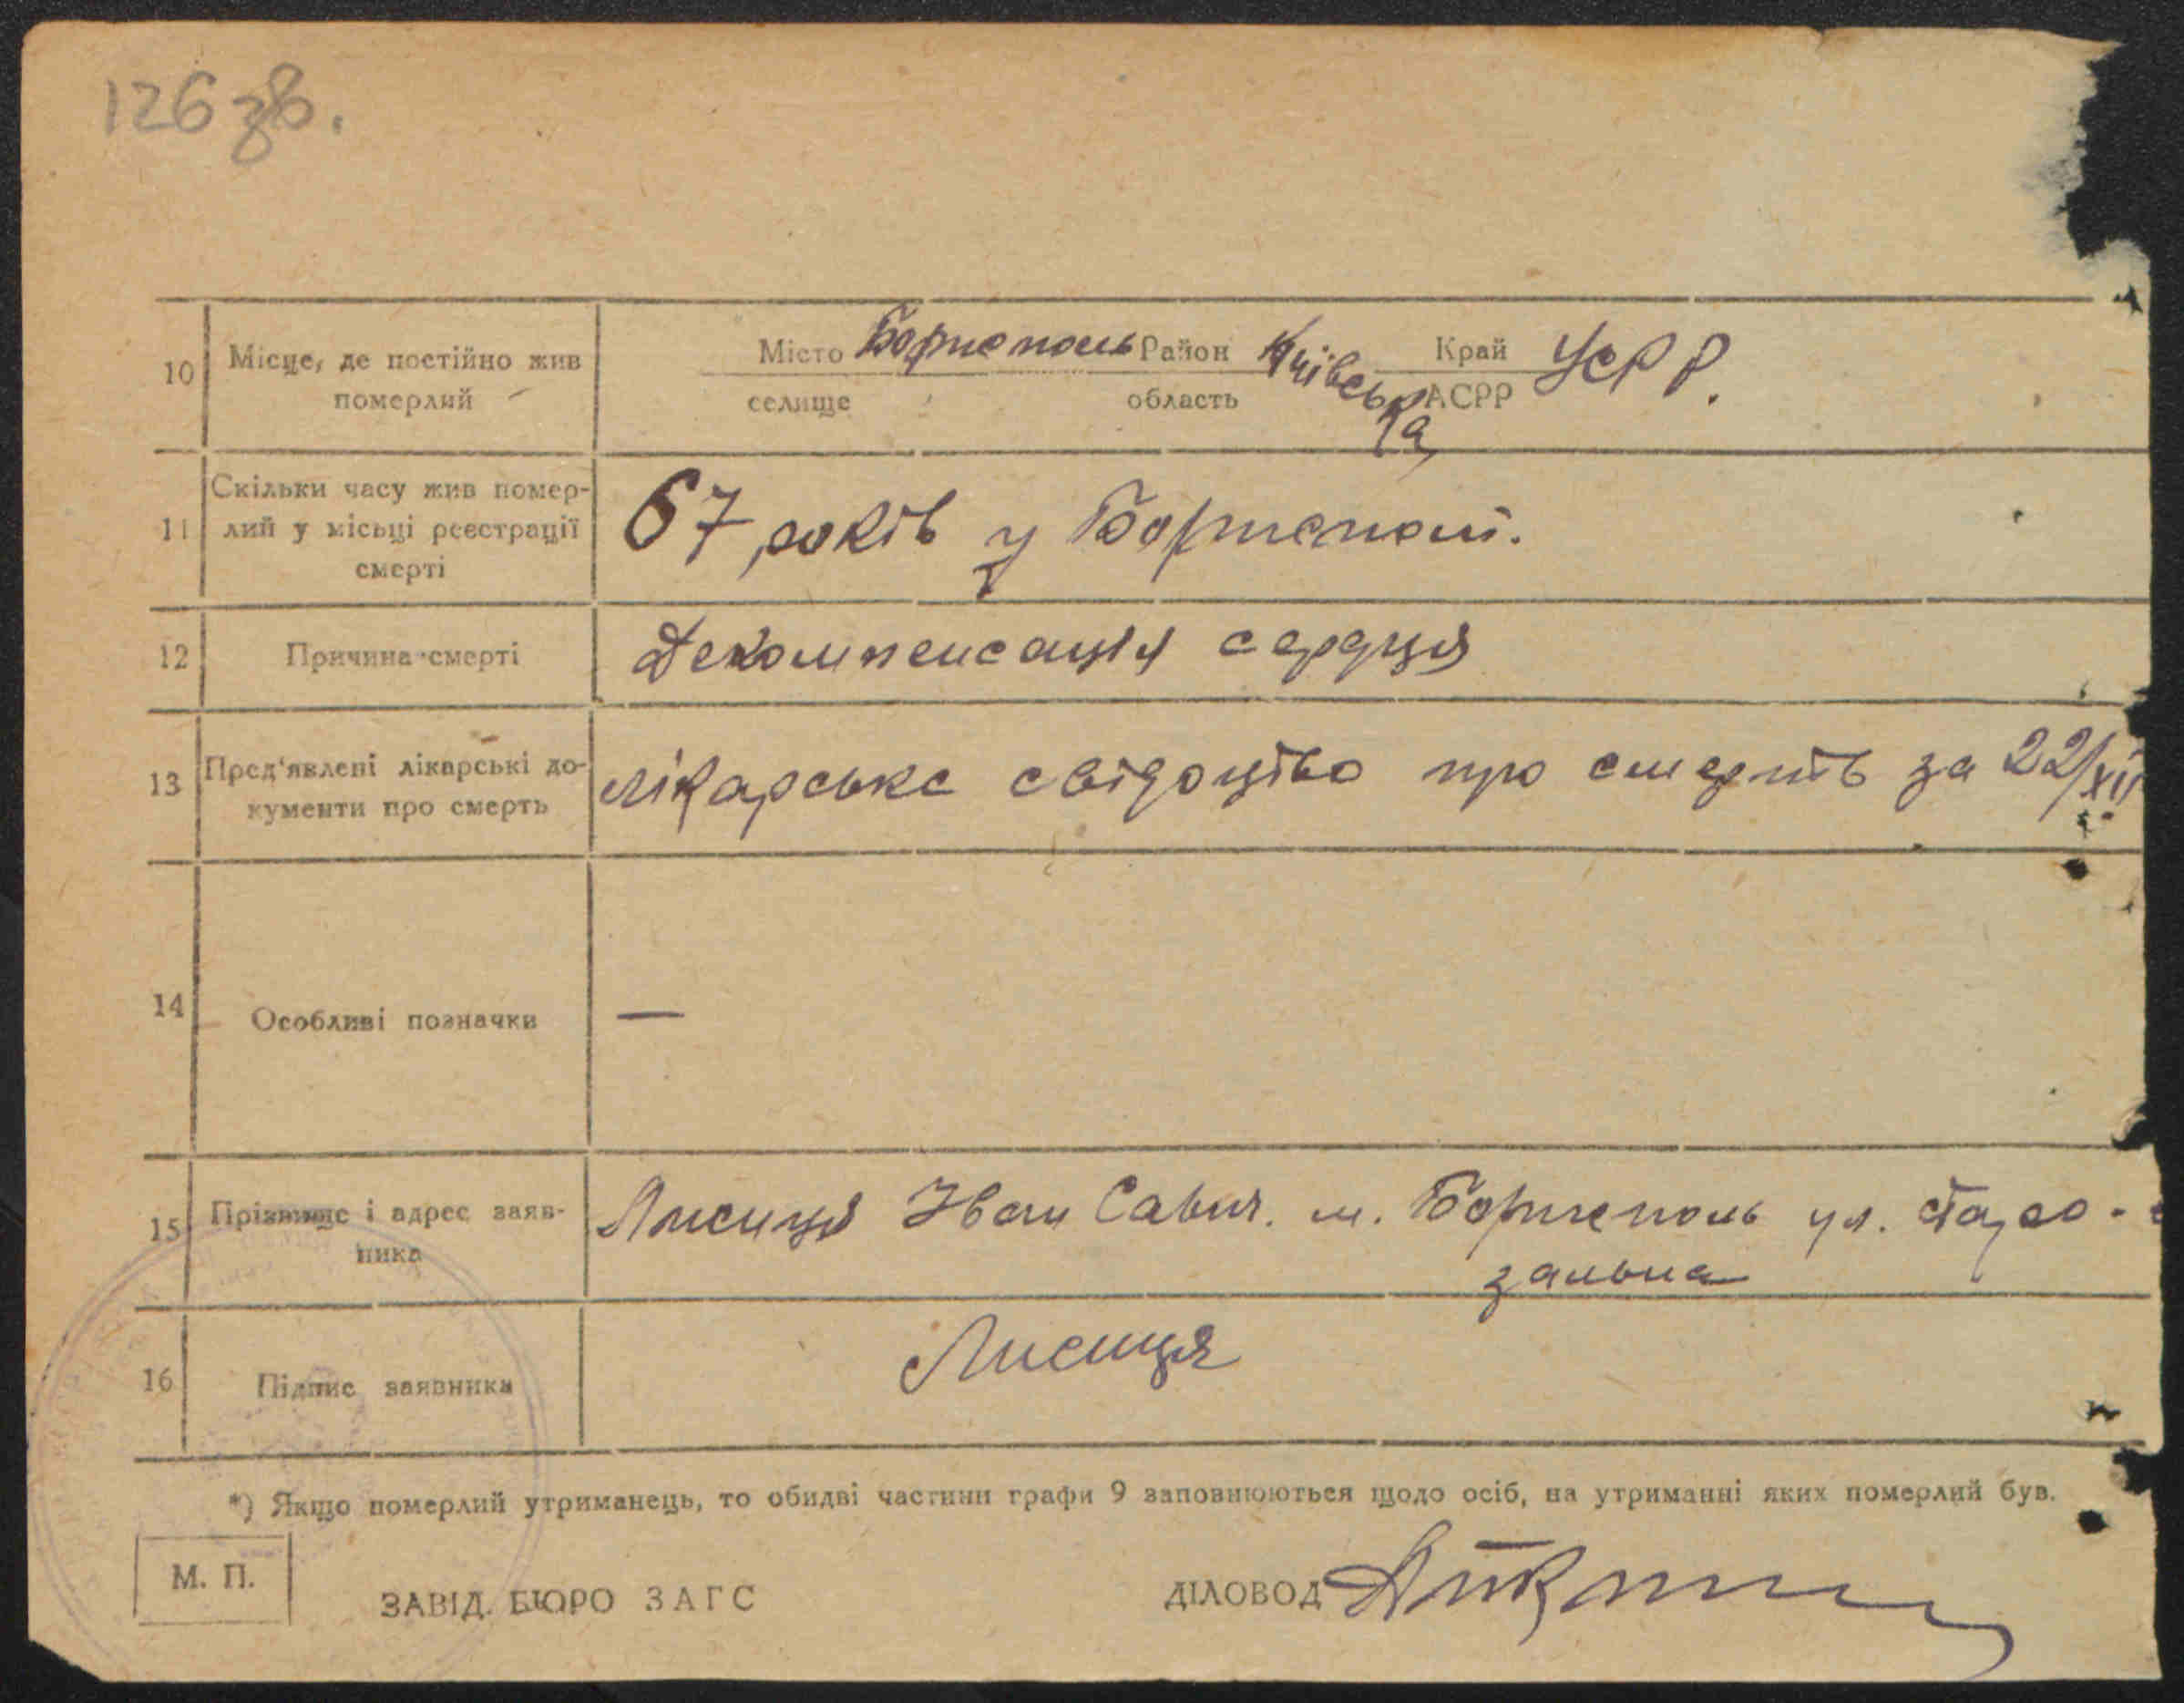 126 зв.
10 Місце, де постійно жив померлий
Місто Борисполь Район Київська Край УСРР.
селище область АСРР
11 Скільки часу жив помер-
лий у місьці реєстрації
смерті
67 років у Борисполі.
12 Причина смерті Декомпенсація серця
13 Пред'явлені лікарські до-
кументи про смерть
лікарське свідоцтво про смерть за 22/XII
14 Особливі позначки —
15 Прізвище і адрес заяв-
ника
Лисиця Іван Савич. м. Борисполь ул.
зальна
16 Підпис заявника Лисиця
*) Якщо померлий утриманець, то обидві частини графи 9 заповнюються щодо осіб, на утриманні яких померлий був.
М. П.
ЗАВІД. БЮРО ЗАГС ДІЛОВОД